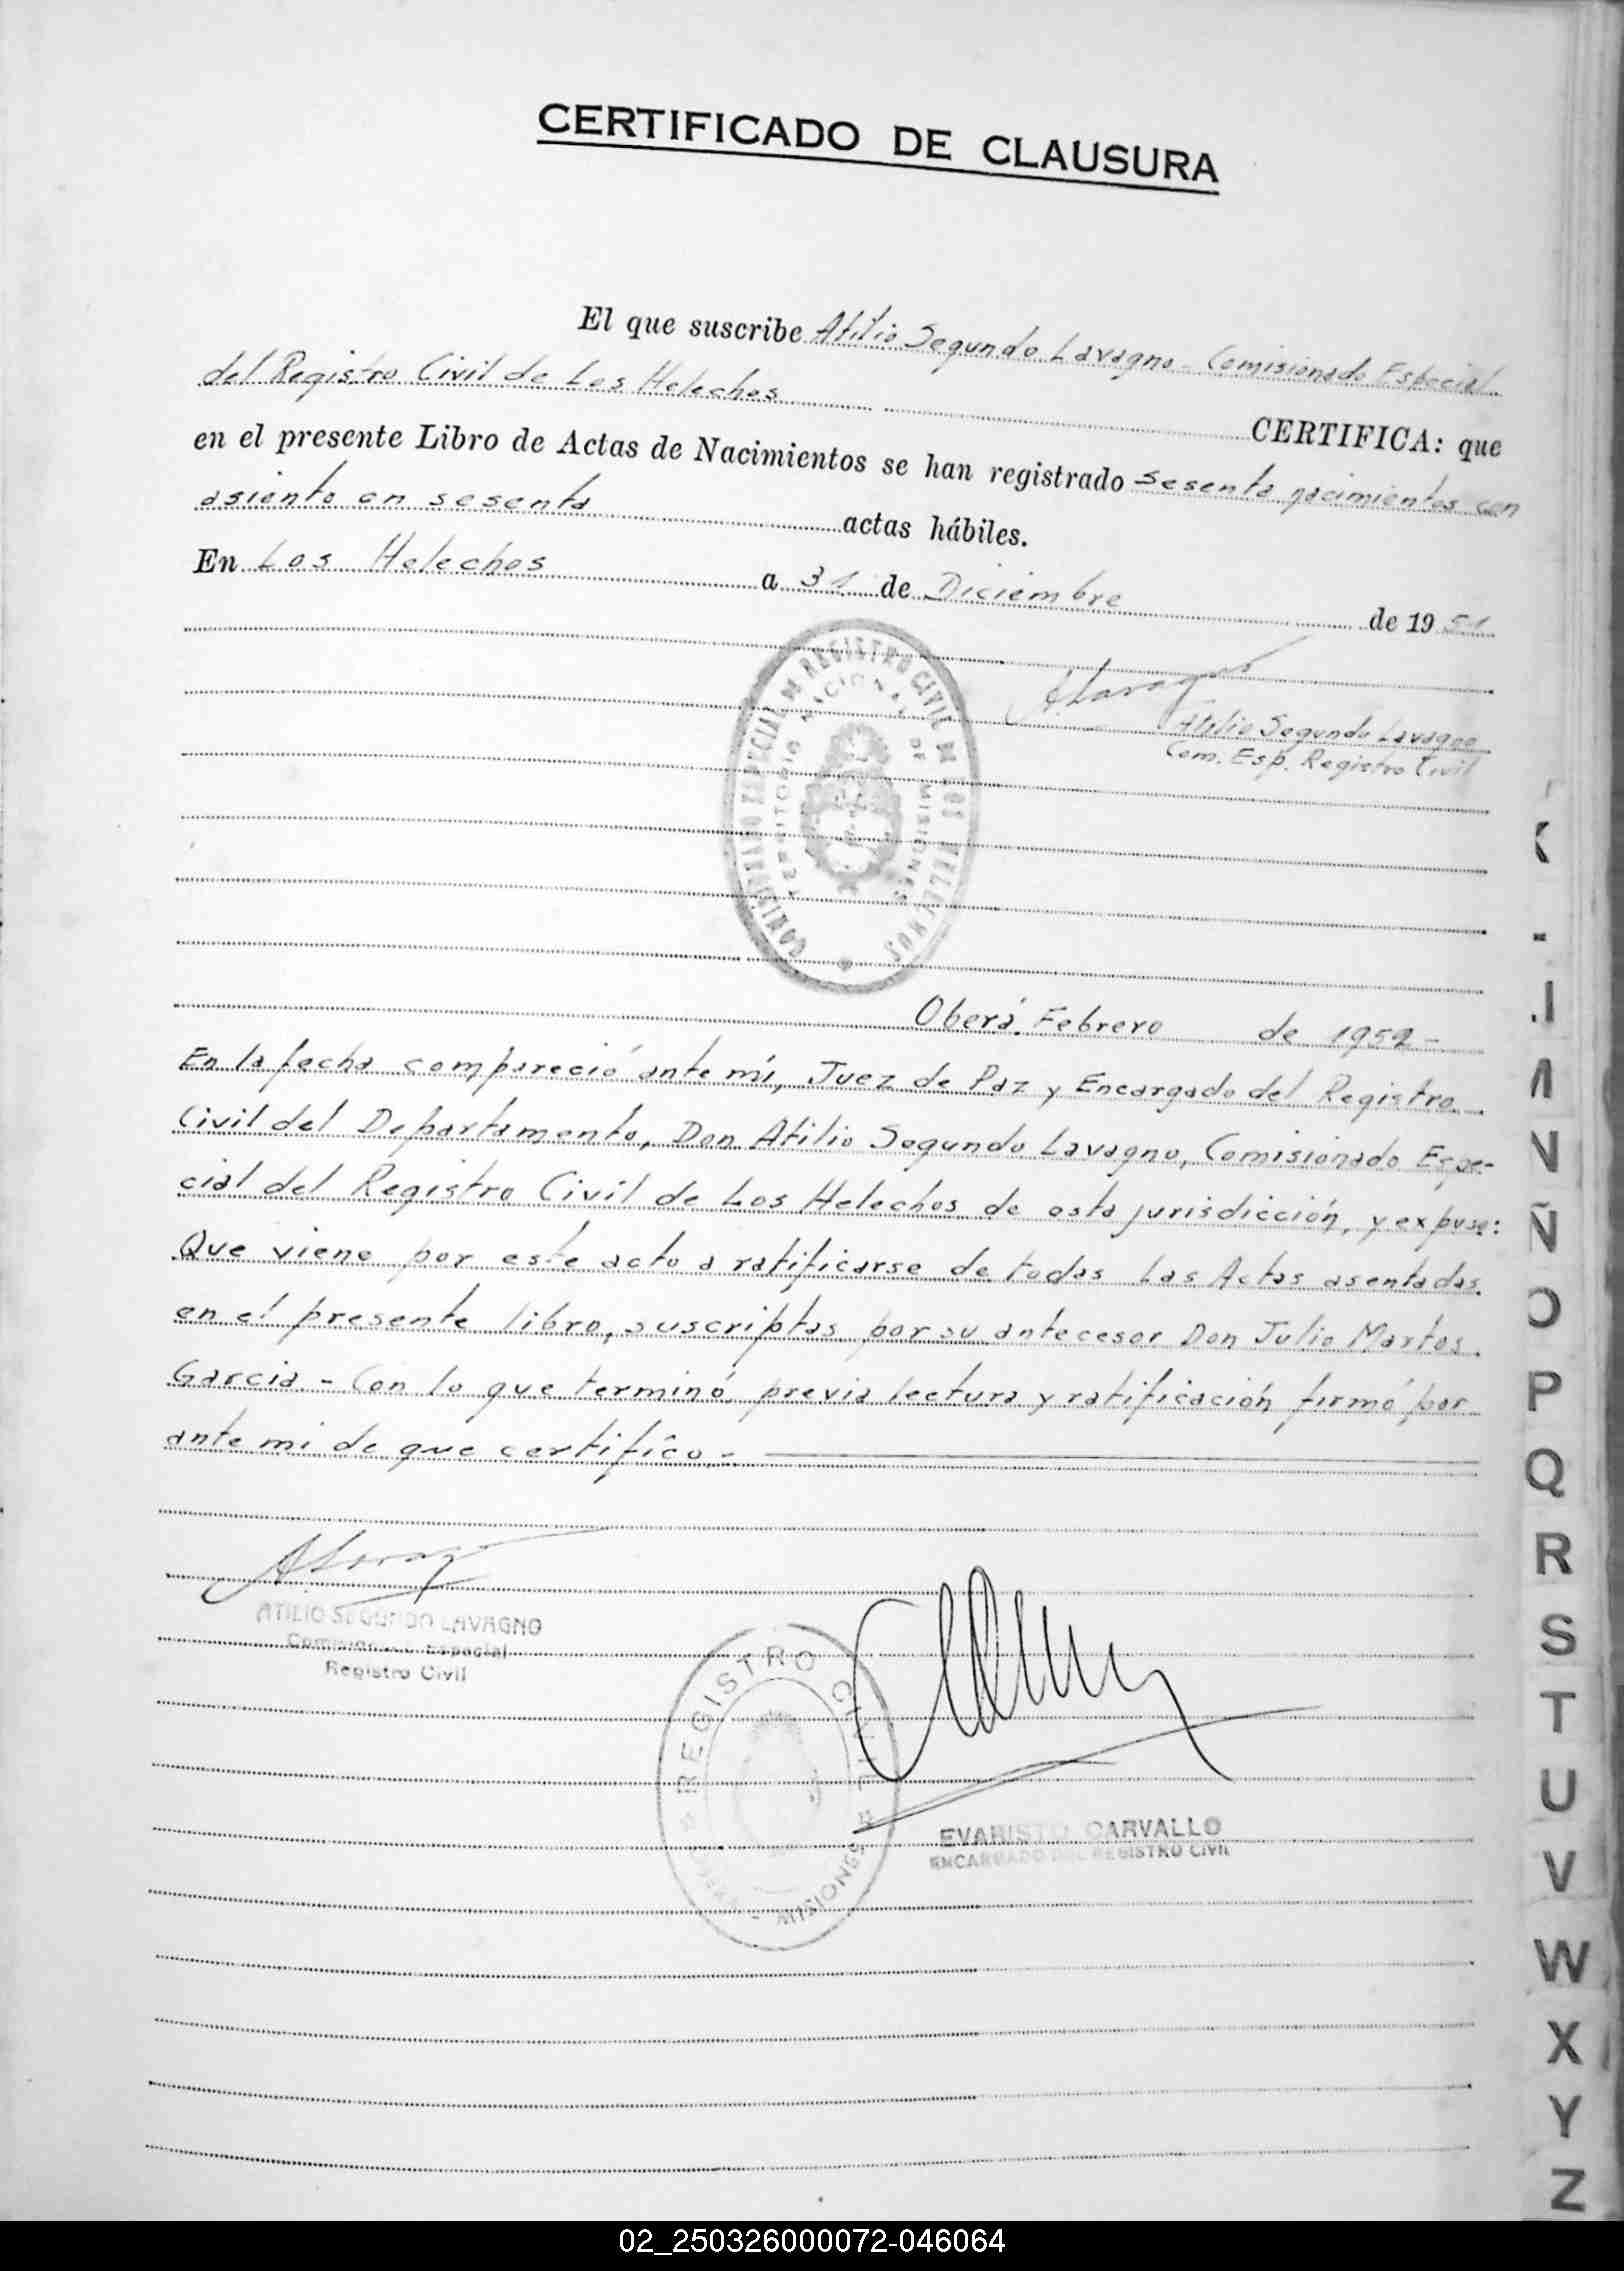 CERTIFICADO DE CLAUSURA
El que suscribe Atilio Segundo Lavagno - Comisionado Especial
del Registro Civil de Los Helechos CERTIFICA: que
en el presente Libro de Actas de Nacimientos se han registrado sesenta nacimientos con
asiento en sesenta actas hábiles.
En Los Helechos a 31 de Diciembre de 1951
COMISIONADO ESPECIAL DE REGISTRO CIVIL DE LOS HELECHOS
TERRITORIO NACIONAL DE MISIONES
Atilio Segundo Lavagno
Com. Esp. Registro Civil
Oberá, Febrero de 1952 -
En la fecha compareció ante mí, Juez de Paz y Encargado del Registro
Civil del Departamento, Don Atilio Segundo Lavagno, Comisionado Espe-
cial del Registro Civil de Los Helechos de esta jurisdicción, y expuso:
Que viene por este acto a ratificarse de todas las Actas asentadas
en el presente libro, suscriptas por su antecesor Don Julio Martos
Garcia. - Con lo que terminó, previa lectura y ratificación firmó por
ante mi de que certifico. -
ATILIO SEGUNDO LAVAGNO
Comisionado Especial
Registro Civil
REGISTRO CIVIL
MISIONES
EVARISTO CARVALLO
ENCARGADO DEL REGISTRO CIVIL
N
Ñ
O
P
Q
R
S
T
U
V
W
X
Y
Z
02_250326000072-046064